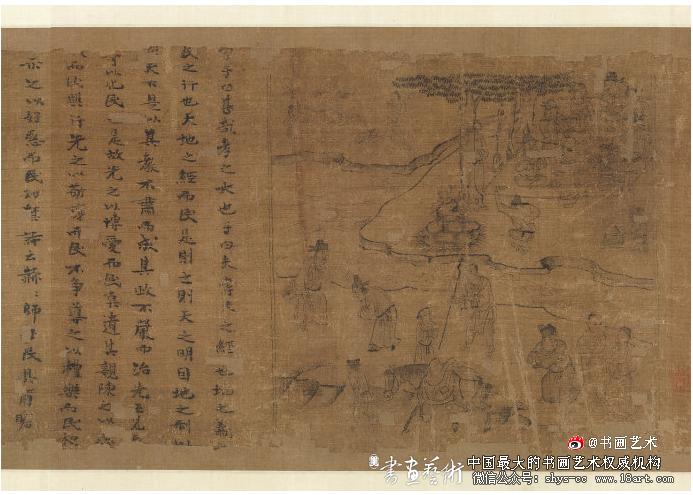 子曰甚哉孝之大也子曰夫孝天之經也地之義
民之行也天地之經而民是則之則天之明因地之利以
天下是以其教不肅而成其政不嚴而治先王
可以化民 是故先之以博愛而民莫遺其親陳之以
而民興行先之以敬讓而民不爭導之以禮樂而民和
示之以好惡而民知禁 詩云赫〻師尹民具爾瞻
@书画艺术
書畫藝術
中国最大的书画艺术权威机构
微信公众号：shys-cc www.18art.com